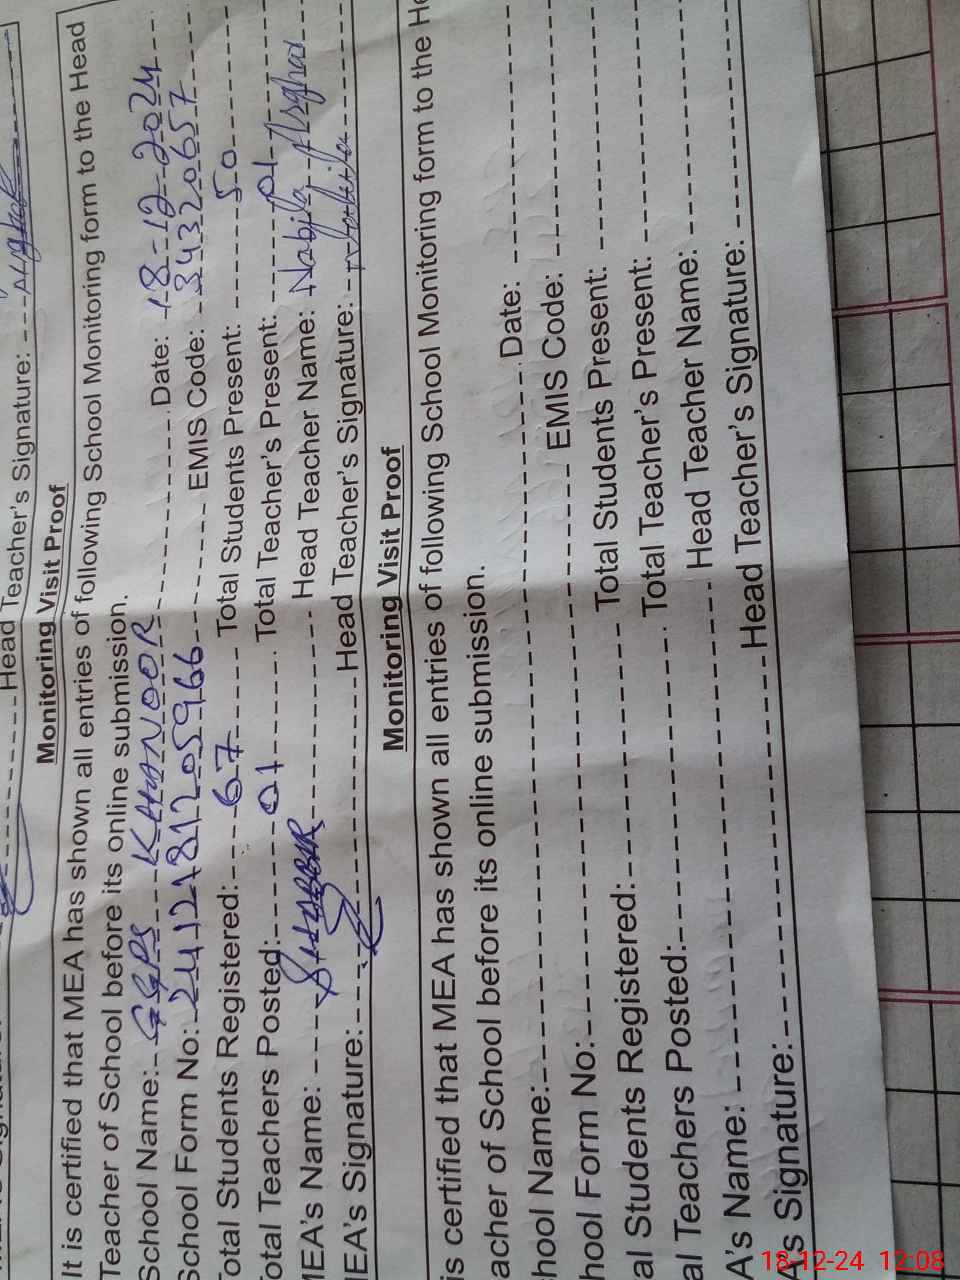 Head Teacher's Signature:
Monitoring Visit Proof
It is certified that MEA has shown all entries of following School Monitoring form to the Head
Teacher of School before its online submission.
School Name: GGPS KAHANOOR Date: 18-12-2024
School Form No: EMIS Code: 34320657
Total Students Registered: 67 Total Students Present: 50
Total Teachers Posted: 01 Total Teacher's Present: 01
MEA's Name: Head Teacher Name: Nabila Asghar
MEA's Signature: Head Teacher's Signature:
Monitoring Visit Proof
is certified that MEA has shown all entries of following School Monitoring form to the He
acher of School before its online submission.
hool Name: Date:
hool Form No: EMIS Code:
al Students Registered: Total Students Present:
al Teachers Posted: Total Teacher's Present:
A's Name: Head Teacher Name:
A's Signature: Head Teacher's Signature:
18-12-24 12:08